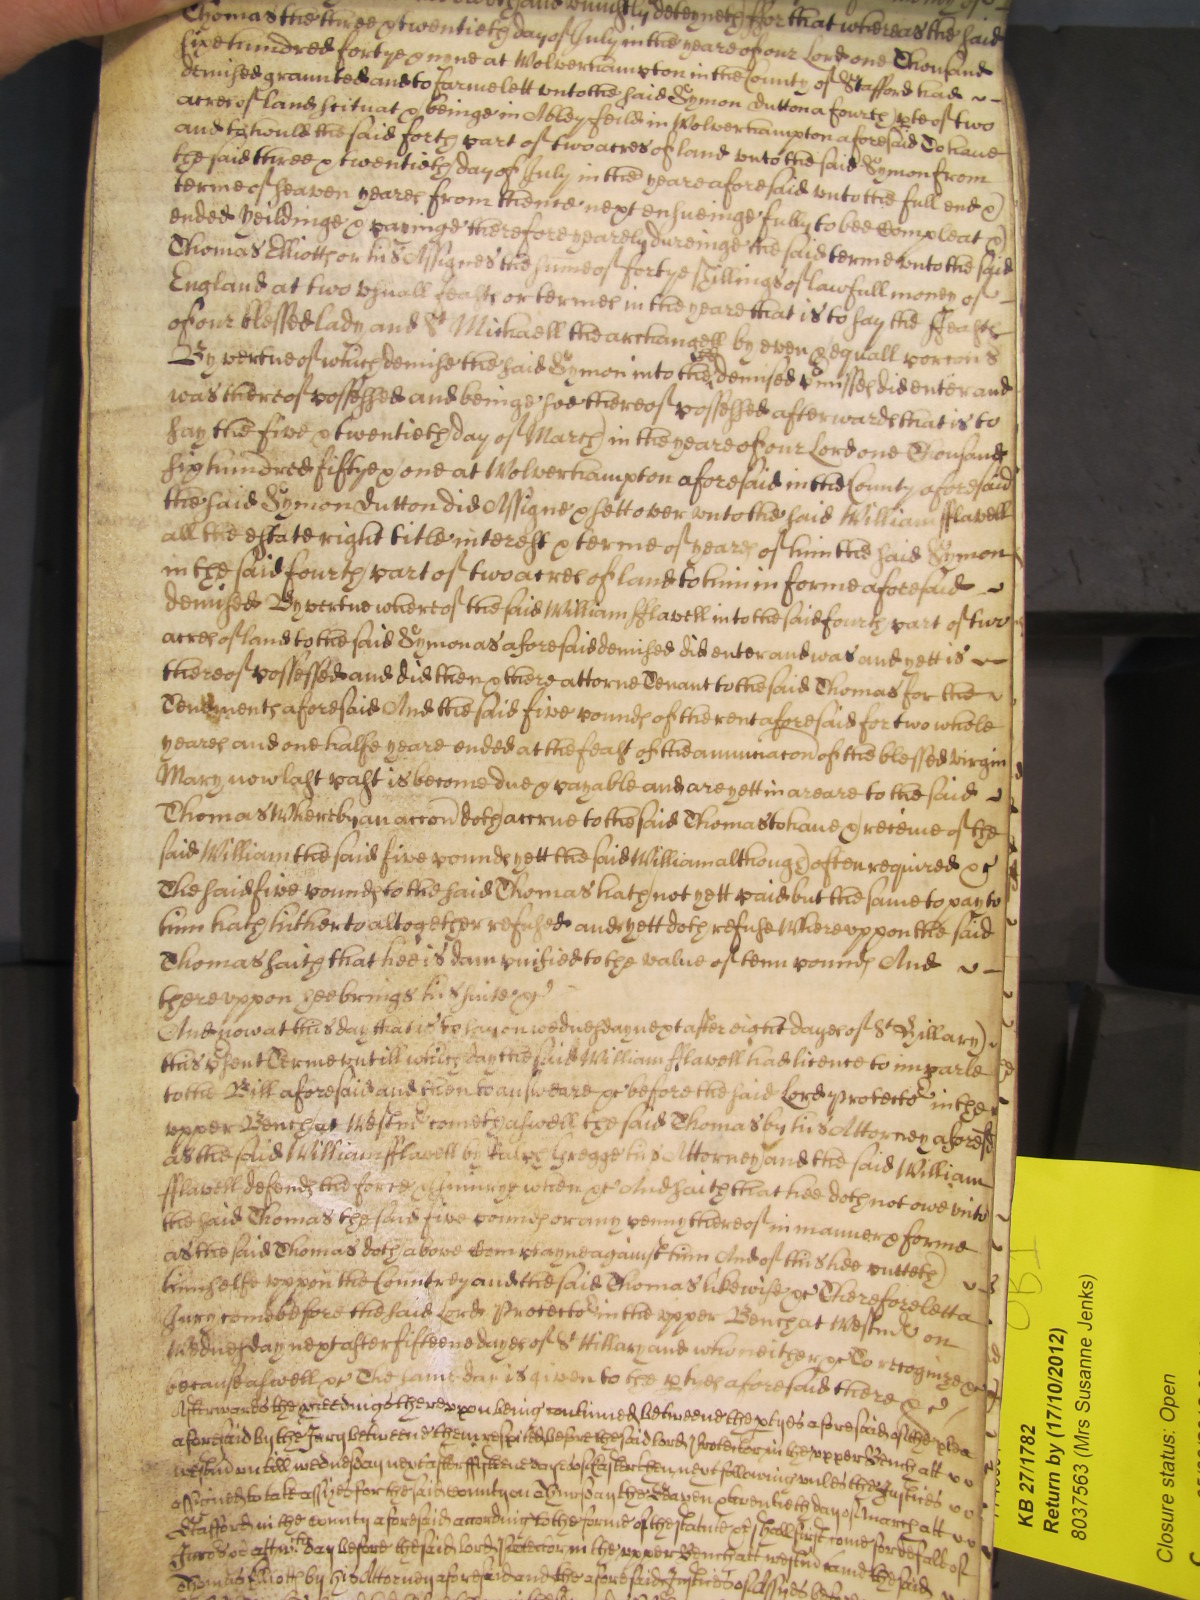 deteyneth ffor that whereas the said
Thomas the three & twentieth day of July in the yeare of our Lord one Thousand
sixe hundred fortye & nyne at Wolverhampton in the County of Stafford had
demised graunted and to farme lett unto the said Symon Dutton a fourth pte of two
acres of land scituat & beinge in Abbey feild in Wolverhampton aforesaid To have
and to hould the said forth part of two acres of land unto the said Symon from
the said three & twentieth day of July in the yeare aforesaid unto the full end &
terme of seaven yeares from thence next ensueinge fully to bee Compleat &
ended Yeildinge & payinge therefore yearely dureinge the said terme unto the said
Thomas Elliotts or his Assignes the sume of fortye shillings of lawfull money of
England at two usuall feasts or termes in the yeare that is to say the ffeasts
of our blessed lady and St Michaell the archangell by even & equall porcons
By vertue of which demise the said Symon into the demised pmisses did enter and
was thereof possessed and beinge soe thereof possessed afterwards that is to
say the five & twentieth day of March in the yeare of our Lord one Thousand
six hundred fiftye & one at Wolverhampton aforesaid in the County aforesaid
the said Symon Dutton did Assigne & sett over unto the said William fflavell
all the estate right title interest & terme of yeares of him the said Symon
in the said fourth part of two acres of land to him in forme aforesaid
demised By vertue whereof the said William fflavell into the said fourth part of two
acres of land to the said Symon as aforesaid demised did enter and was and yett is
thereof possessed and did then & there attorne Tenant to the said Thomas for the
Tenements aforesaid And the said five pounds of the rent aforesaid for two whole
yeares and one halfe yeare ended at the feast of the annunciacon of the blessed virgin
Mary now last past is become due & payable and are yett in areare to the said
Thomas Whereby an accon doth accrue to the said Thomas to have & receive of the
said William the said five pounds yett the said William although often required &c
The said five pounds to the said Thomas hath not yett paid but the same to pay to
him hath hitherto altogether refused and yett doth refuse Whereuppon the said
Thomas saith that hee is dampnified to the value of tenn pounds And
thereuppon hee brings his suite &c
And now at this day that is to say on wednesday next after eight dayes of St Hillary
this psent Terme untill which day the said William fflavell had licence to imparle
to the Bill aforesaid and then to answeare &c before the said Lord Protector in the
upper Bench at Westmr cometh aswell the said Thomas by his Attorney aforesd
as the said William fflavell by Gregge his Attorney and the said William
fflavell defends the force & Iniurye when &c And saith that hee doth not owe unto
the said Thomas the said five pounds or any penny thereof in manner & forme
as the said Thomas doth above Complayne against him And of this hee putteth
himselfe uppon the Countrey and the said Thomas likewise &c Therefore lett a
Jury come before the said Lord Protector in the upper Bench at Westmr on
Wednesday next after fifteene dayes of St Hillary and who neither &c To recognize &c
because aswell &c The same day is given to the ptyes aforesaid there &c
Afterwards the pceedings thereuppon being continued betweene the ptyes aforesaid of the plea
aforesaid by the Jury betweene them respited before the said Lord Protector in the upper Bench att
westmr untill wednesday next after fifteene dayes of Easter then next following unles the Justices
assigned to take assizes for the said county on the Seaven & twentieth day of March att
Stafford in the county aforesaid according to the forme of the statute &c shall first come for default of
Jurors &c att which day before the said Lord Protector in the upper Bench att westmr came the said
Thomas Elliotts by his Attorney aforesaid and the aforesaid Justices of Assizes
KB 27/1782
Return by (17/10/2012)
8037563 (Mrs Susanne Jenks)
Closure status: Open